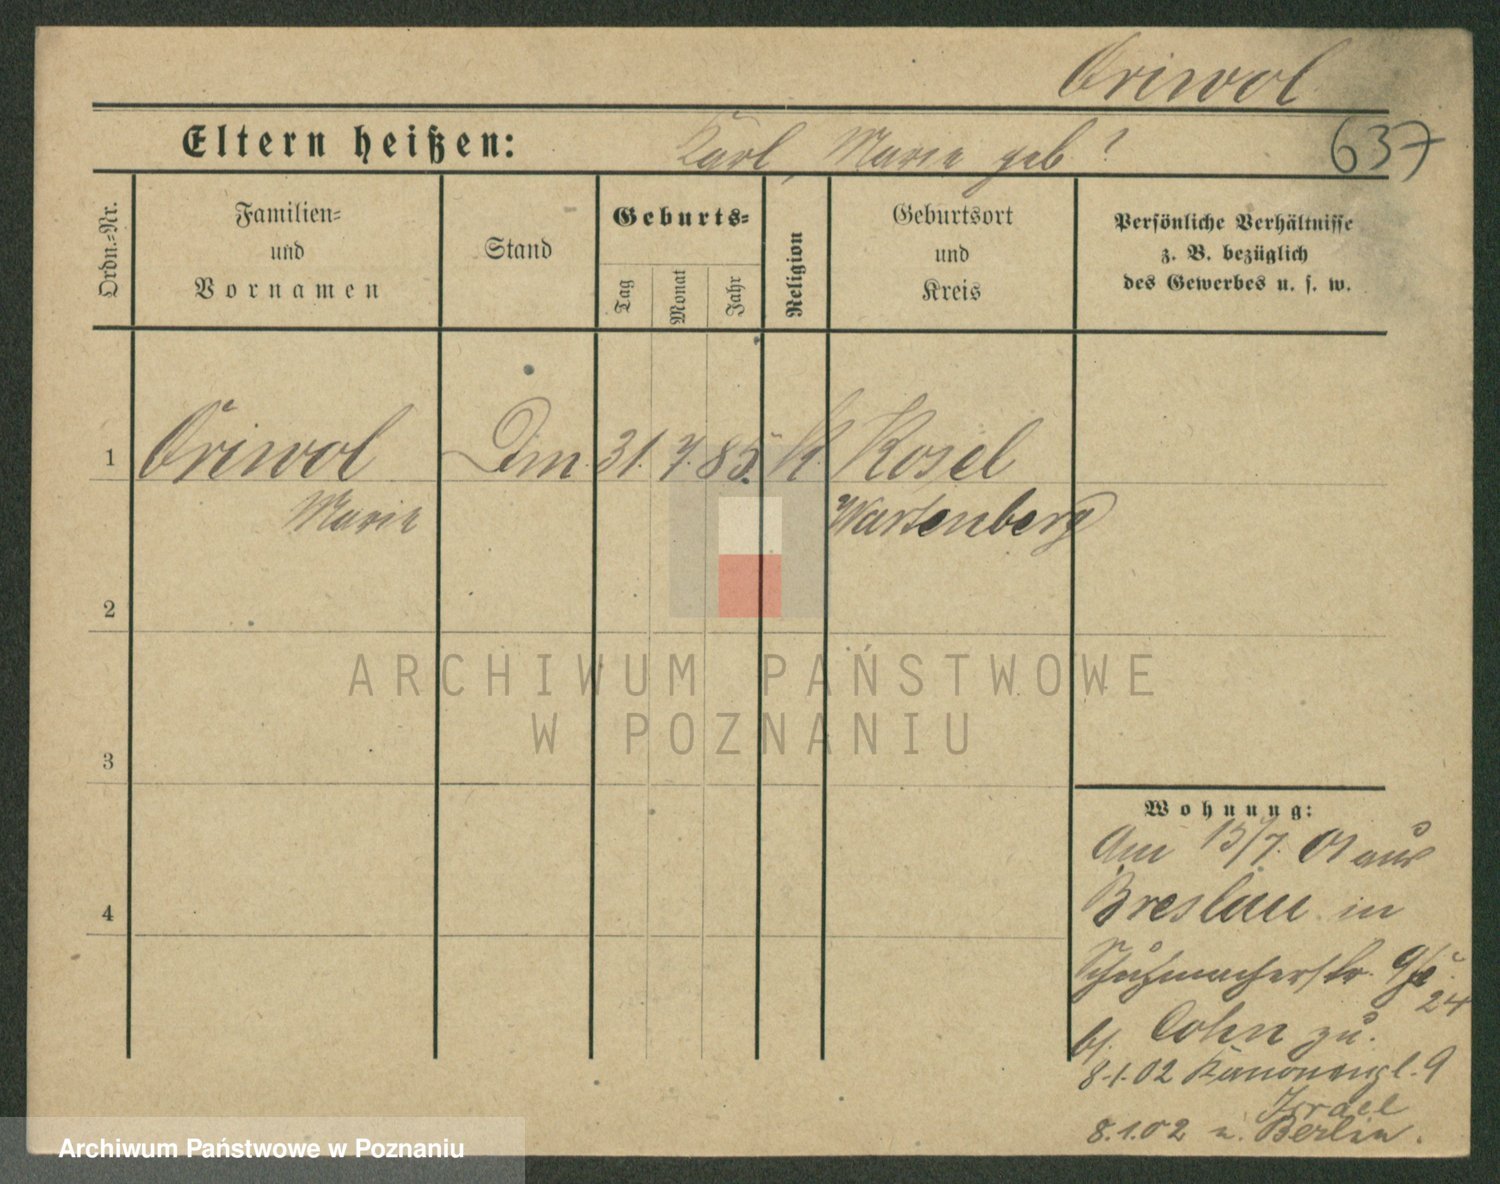 Criwol
637
Eltern heißen: Karl, Marie geb ?
Ordn.=Nr.
Familien=
und
Vornamen
Stand
Geburts=
Tag
Monat
Jahr
Religion
Geburtsort
und
Kreis
Persönliche Verhältnisse
z. B. bezüglich
des Gewerbes u. s. w.
1 Criwol 31. 7. 85 K. Kosel
Marie Wartenberg
2
3
4
ARCHIWUM PAŃSTWOWE
W POZNANIU
Wohnung:
Am 15/7. 01 aus
Breslau in
Schuhmacherstr.
24
b/. Cohn zu.
8.1.02 Kanonenpl. 9
Israel
8.1.02 n. Berlin.
Archiwum Państwowe w Poznaniu